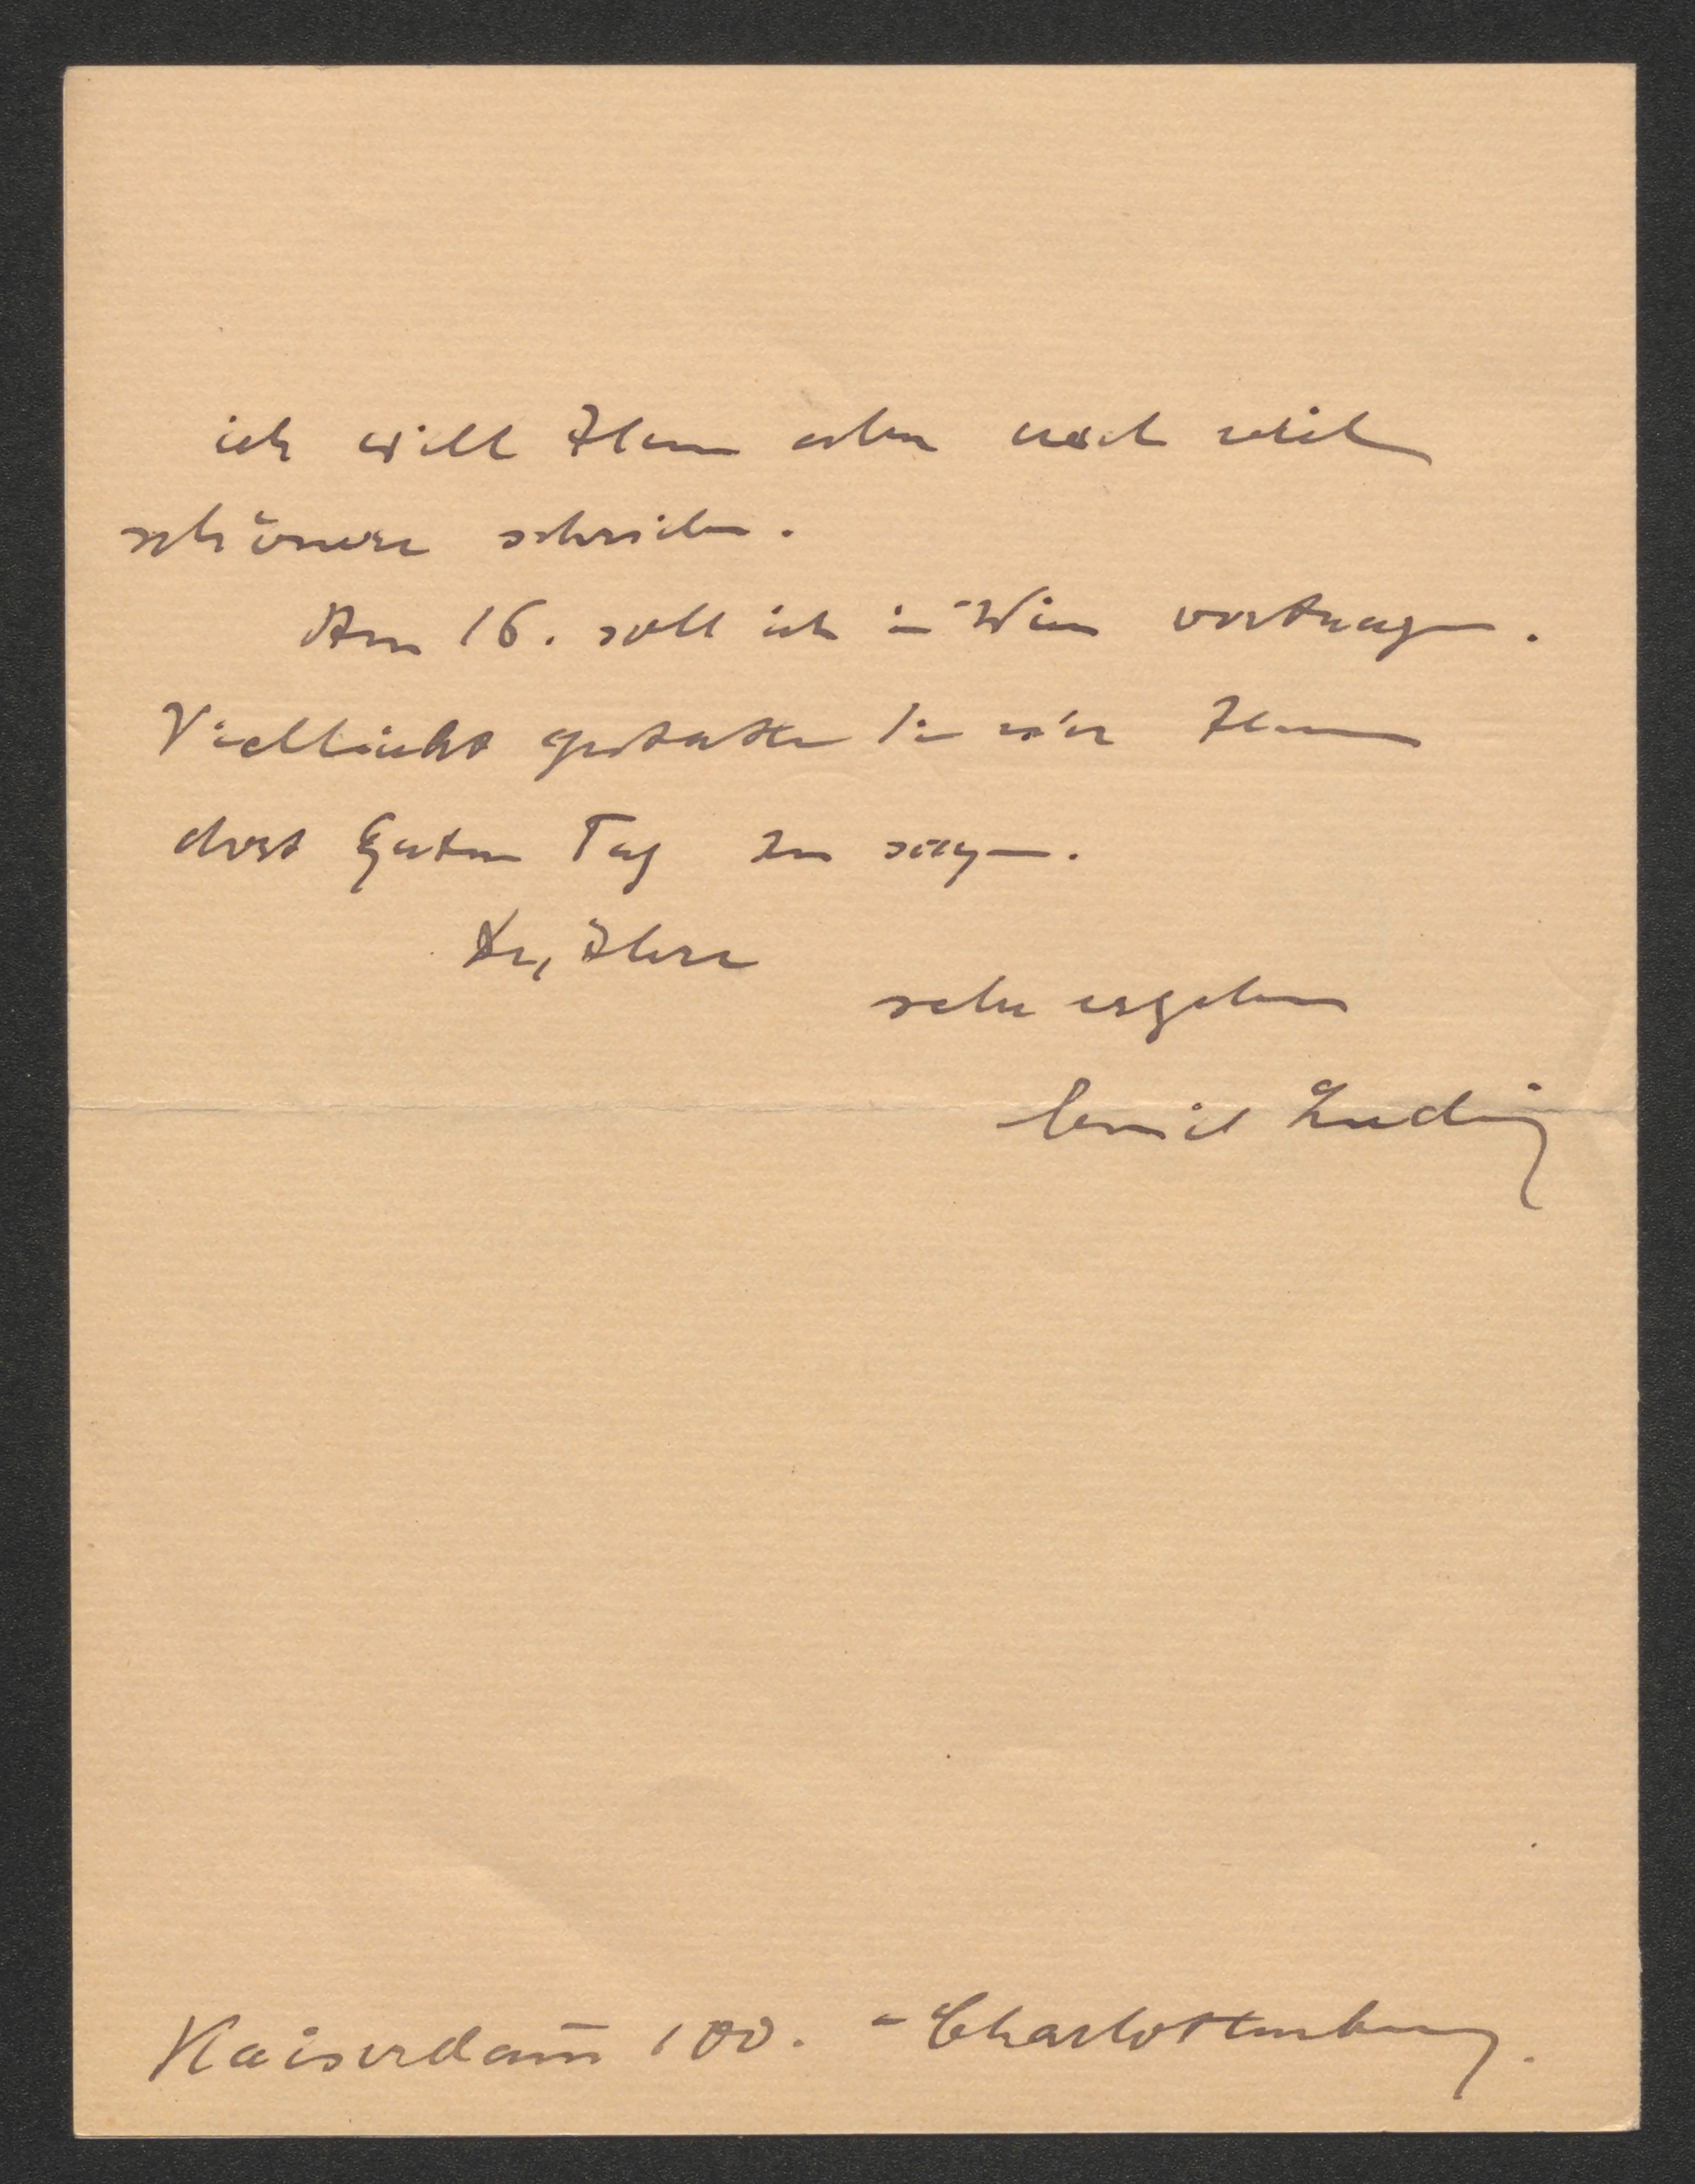 ich will Ihnen aber noch viel
schönere schreiben.
Am 16. soll ich in Wien vortragen.
Vielleicht gestatten Sie mir Ihnen
dort Guten Tag zu sagen.
Ihre
sehr ergeben
Emil Ludwig
Kaiserdam̅ 100. - Charlottenburg.